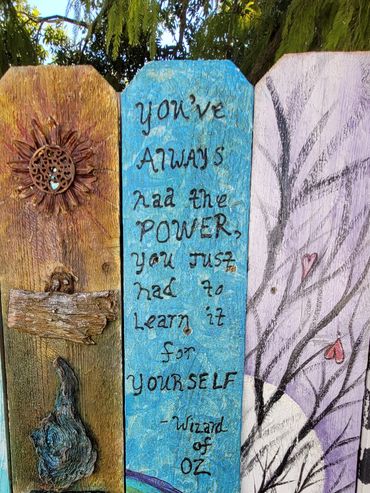 YOU'VE
AlWAYS
had the
POWER,
you just
had to
Learn it
for
YOURSELF
- Wizard
of
OZ